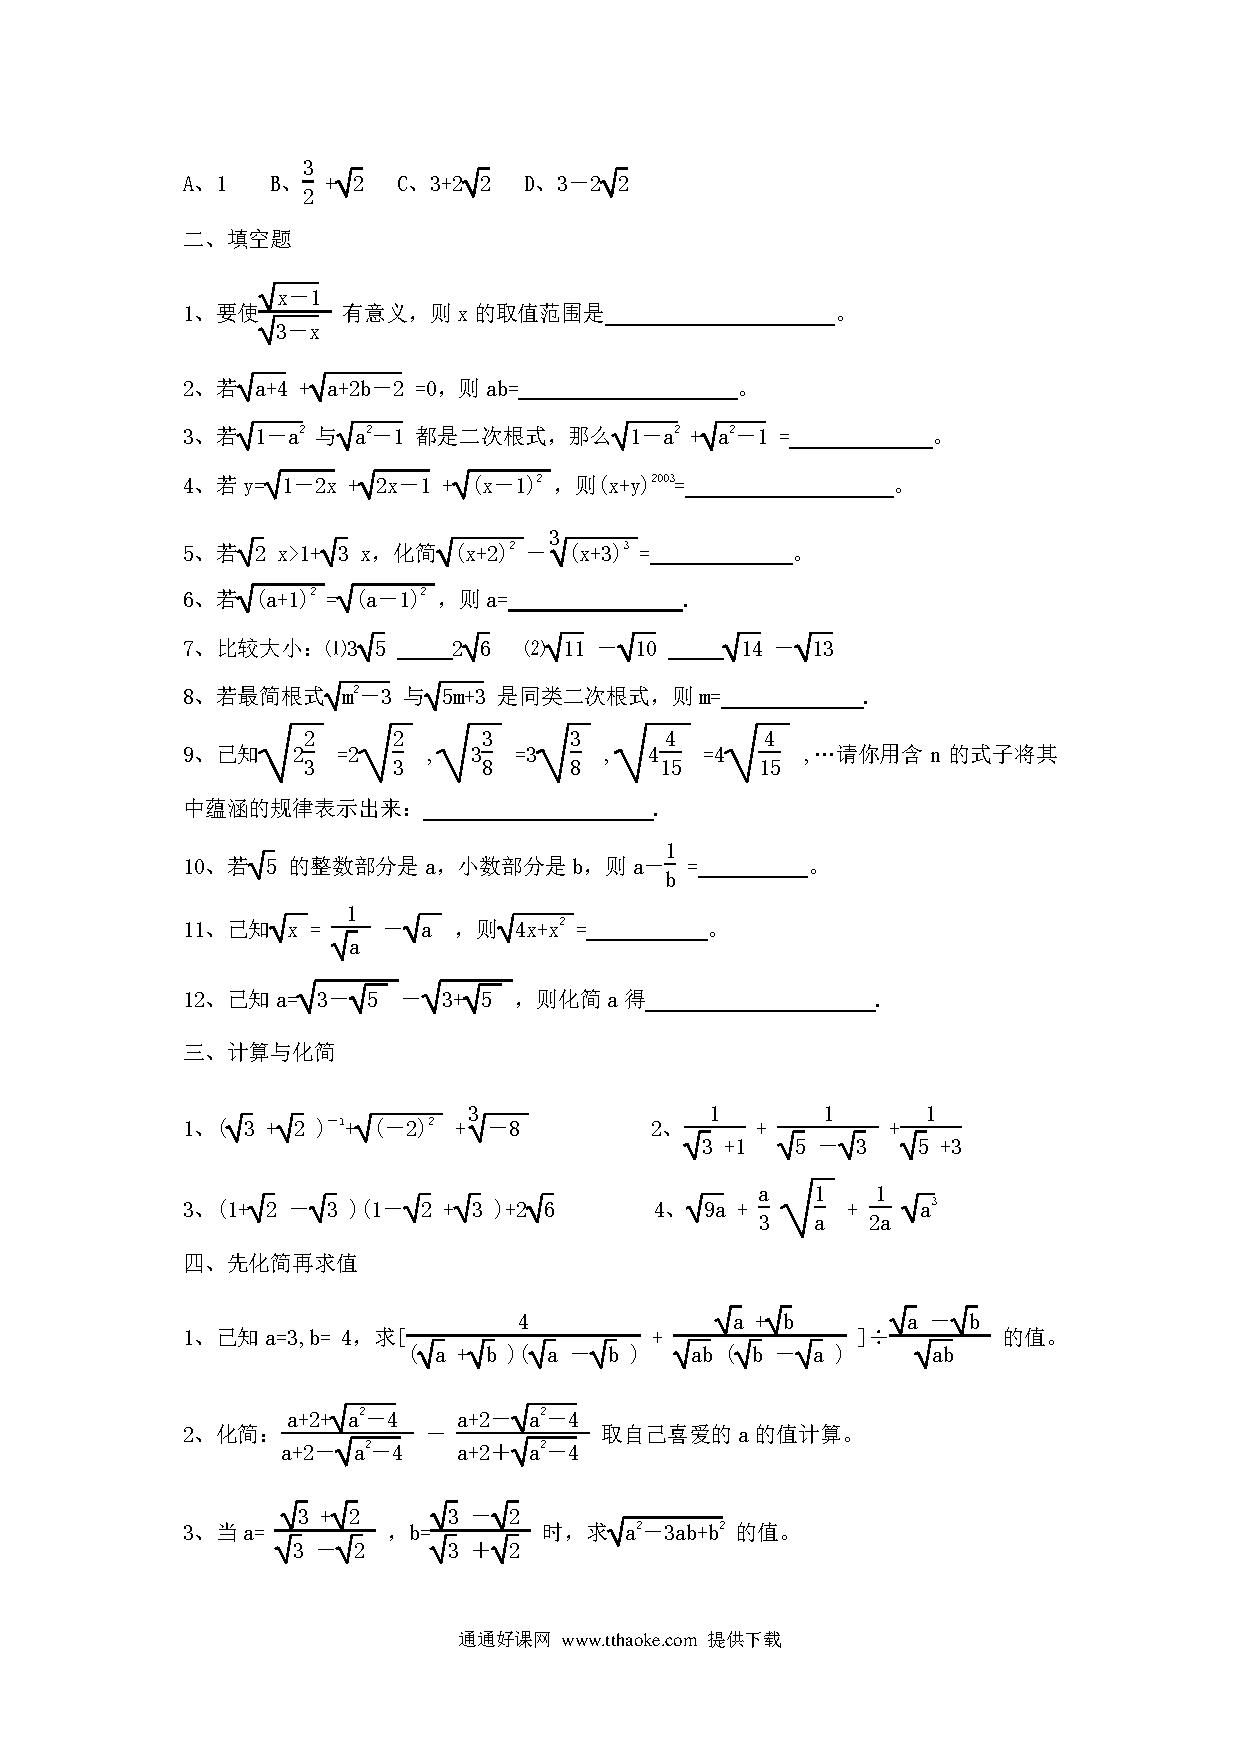 A、1 B、3/2 +√2 C、3+2√2 D、3－2√2
二、填空题
1、要使√(x－1)/√(3－x) 有意义，则 x 的取值范围是____________。
2、若√(a+4) +√(a+2b－2) =0，则 ab=____________。
3、若√(1－a²) 与√(a²－1) 都是二次根式，那么√(1－a²) +√(a²－1) =________。
4、若 y=√(1－2x) +√(2x－1) +√((x－1)²) ，则(x+y)²⁰⁰³=____________。
5、若√2 x>1+√3 x，化简√((x+2)²) －³√((x+3)³) =________。
6、若√((a+1)²) =√((a－1)²) ，则 a=__________.
7、比较大小：⑴3√5 ____2√6 ⑵√11 －√10 ____√14 －√13
8、若最简根式√(m²－3) 与√(5m+3) 是同类二次根式，则 m=________.
9、已知√(2 2/3) =2√(2/3) ，√(3 3/8) =3√(3/8) ，√(4 4/15) =4√(4/15) ，…请你用含 n 的式子将其
中蕴涵的规律表示出来：____________.
10、若√5 的整数部分是 a，小数部分是 b，则 a－1/b =______。
11、已知√x = 1/√a －√a ，则√(4x+x²) =______。
12、已知 a=√(3－√5) －√(3+√5) ，则化简 a 得____________.
三、计算与化简
1、(√3 +√2 )⁻¹+√((－2)²) +³√(－8) 2、1/(√3 +1) + 1/(√5 －√3) + 1/(√5 +3)
3、(1+√2 －√3 )(1－√2 +√3 )+2√6 4、√(9a) + a/3 √(1/a) + 1/(2a) √(a³)
四、先化简再求值
1、已知 a=3,b= 4，求[4/((√a +√b )(√a －√b )) + (√a +√b)/(√(ab) (√b －√a ))]÷(√a －√b)/√(ab) 的值。
2、化简：(a+2+√(a²－4))/(a+2－√(a²－4)) － (a+2－√(a²－4))/(a+2＋√(a²－4)) 取自己喜爱的 a 的值计算。
3、当 a= (√3 +√2)/(√3 －√2) ，b=(√3 －√2)/(√3 ＋√2) 时，求√(a²－3ab+b²) 的值。
通通好课网 www.tthaoke.com 提供下载